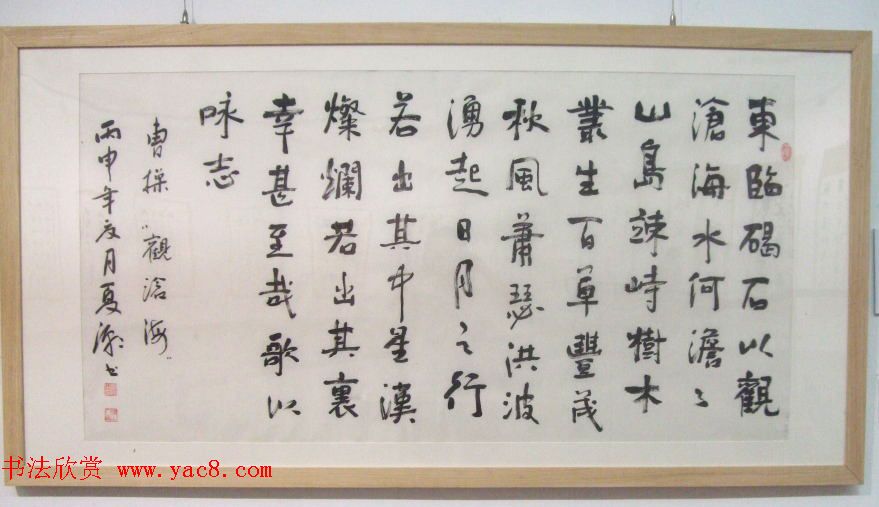 東臨碣石以觀
滄海水何澹々
山島竦峙樹木
叢生百草豐茂
秋風蕭瑟洪波
湧起日月之行
若出其中星漢
燦爛若出其裏
幸甚至哉歌以
咏志
曹操"觀滄海"
丙申年月夏书
书法欣赏 www.yac8.com